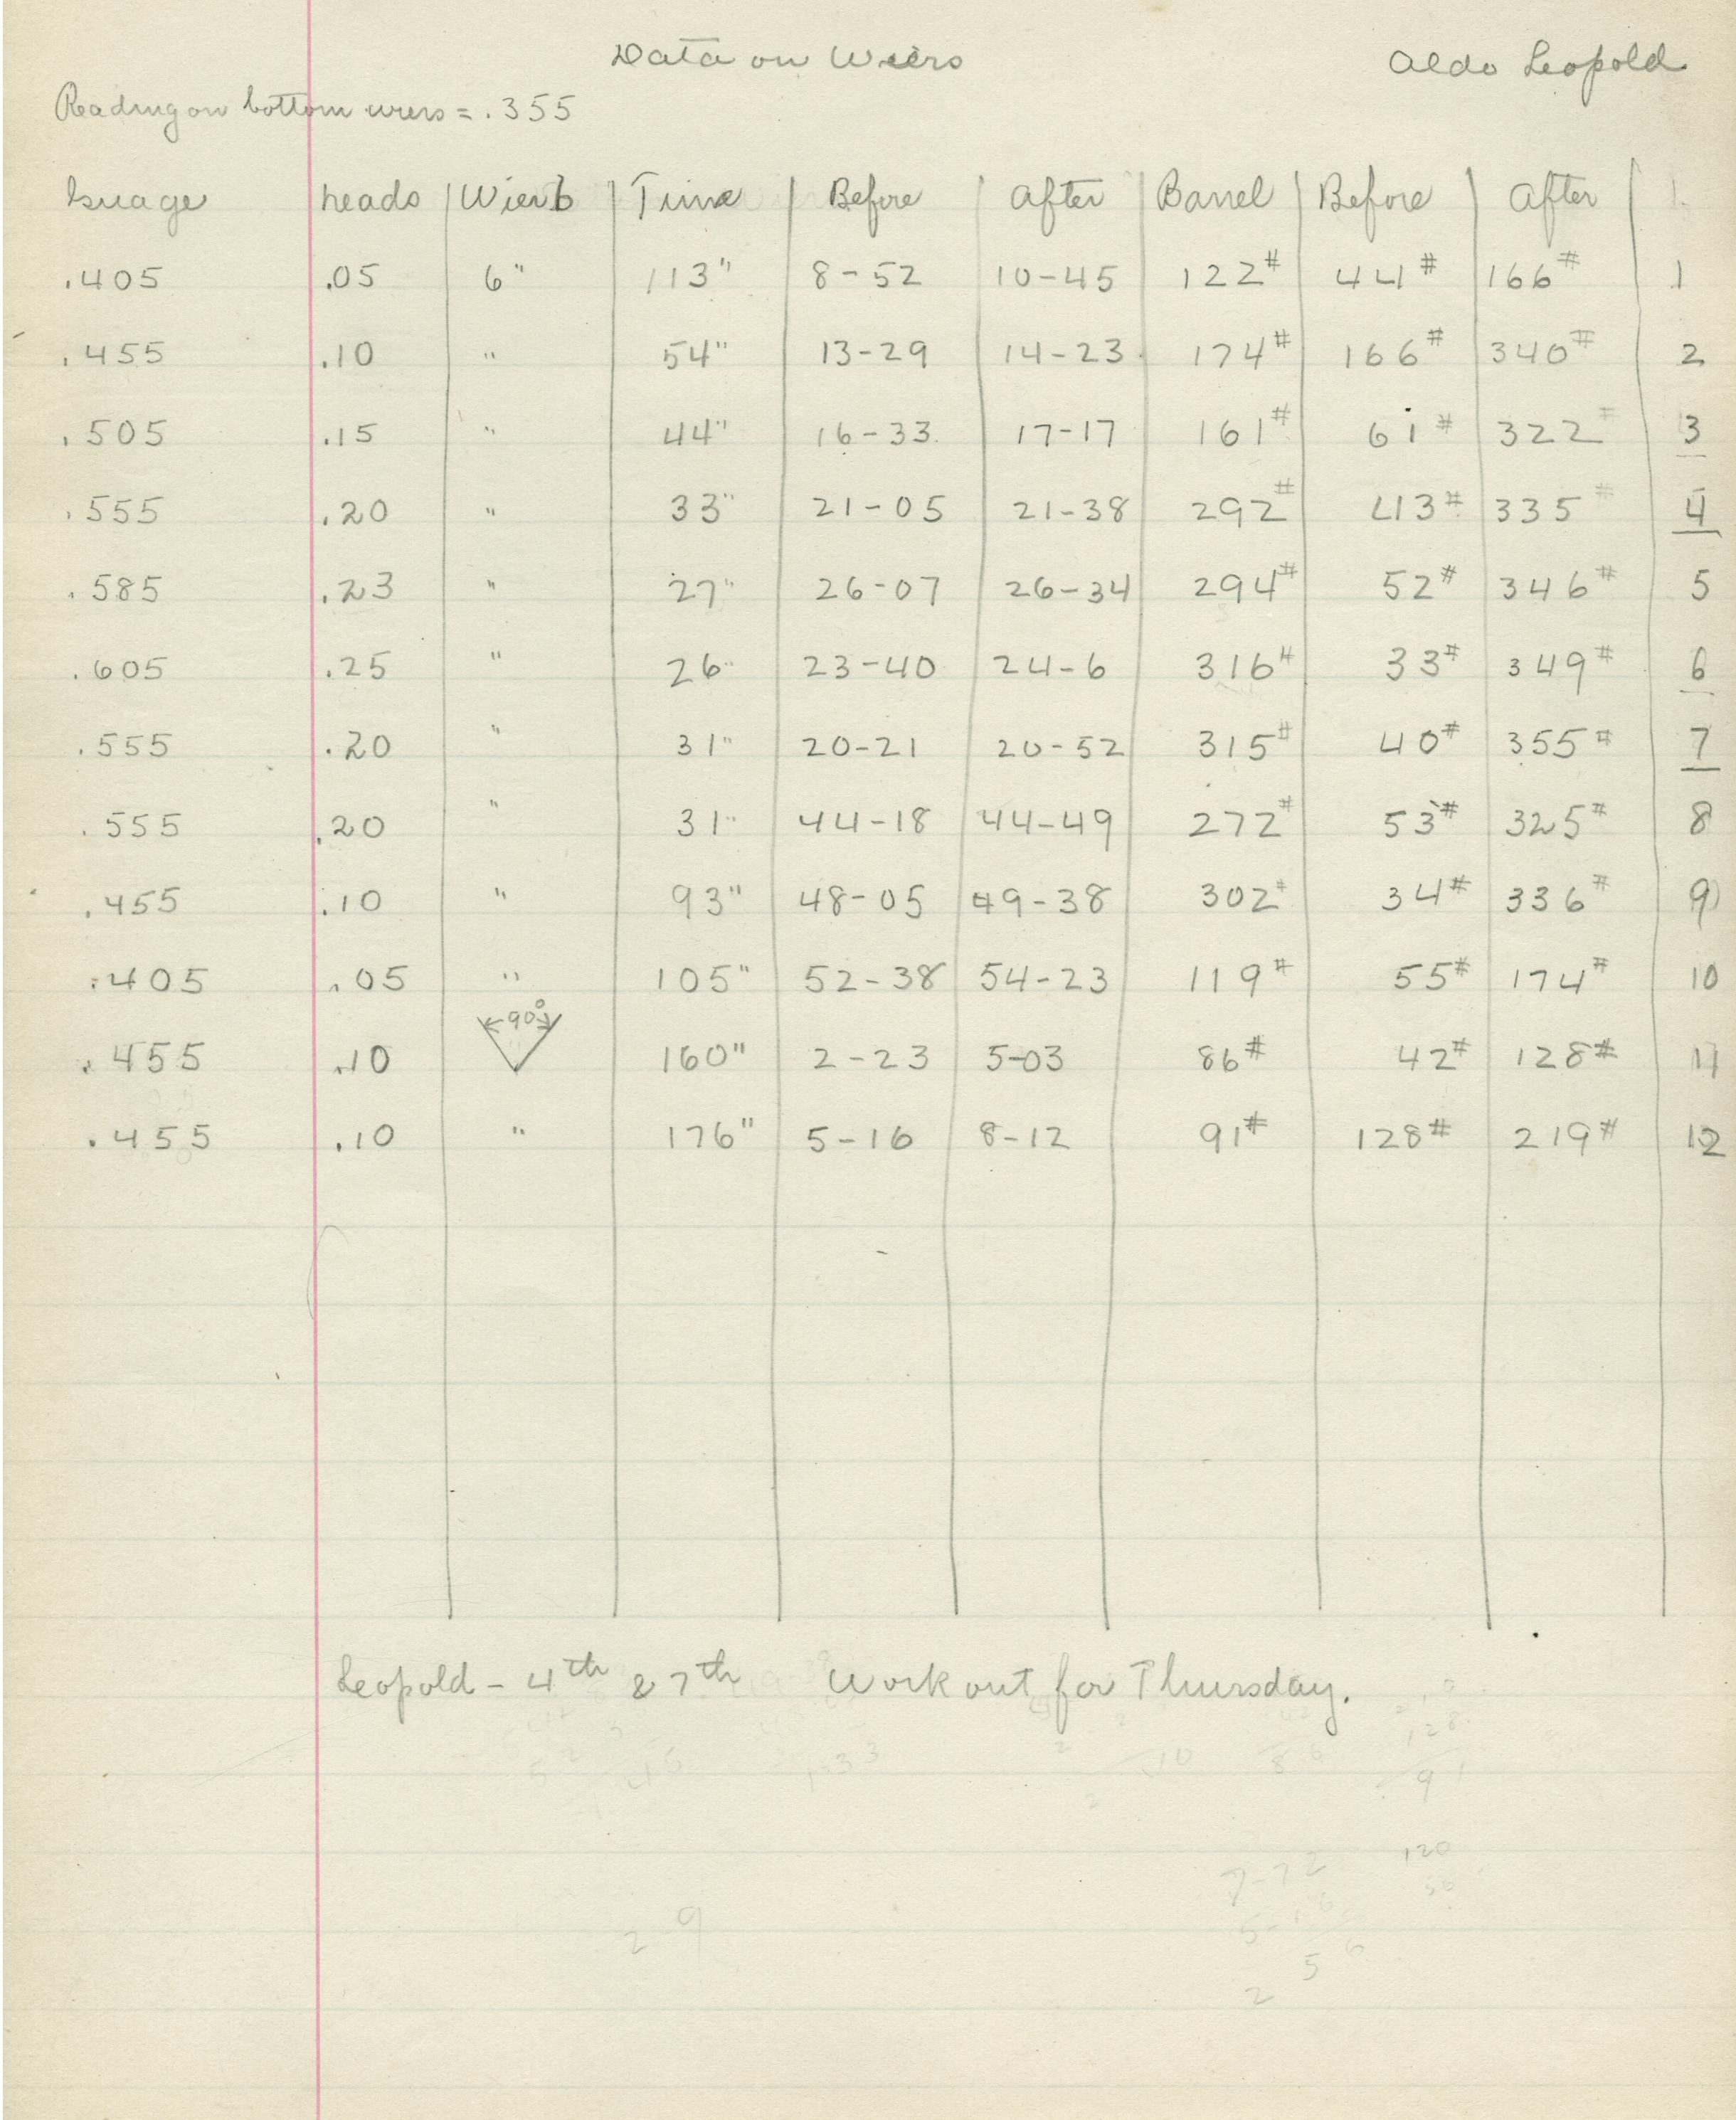 Data on Wiers
Aldo Leopold
Reading on bottom wiers = .355
Guage heads Wierb Time Before After Barrel Before After
.405 .05 6" 113" 8-52 10-45 122# 44# 166# 1
.455 .10 " 54" 13-29 14-23 174# 166# 340# 2
.505 .15 " 44" 16-33 17-17 161# 61# 322# 3
.555 .20 " 33" 21-05 21-38 292# 43# 335# 4
.585 .23 " 27" 26-07 26-34 294# 52# 346# 5
.605 .25 " 26" 23-40 24-6 316# 33# 349# 6
.555 .20 " 31" 20-21 20-52 315# 40# 355# 7
.555 .20 " 31" 44-18 44-49 272# 53# 325# 8
.455 .10 " 93" 48-05 49-38 302# 34# 336# 9
.405 .05 " 105" 52-38 54-23 119# 55# 174# 10
.455 .10 90° 160" 2-23 5-03 86# 42# 128# 11
.455 .10 " 176" 5-16 8-12 91# 128# 219# 12
Leopold - 4th & 7th Work out for Thursday.